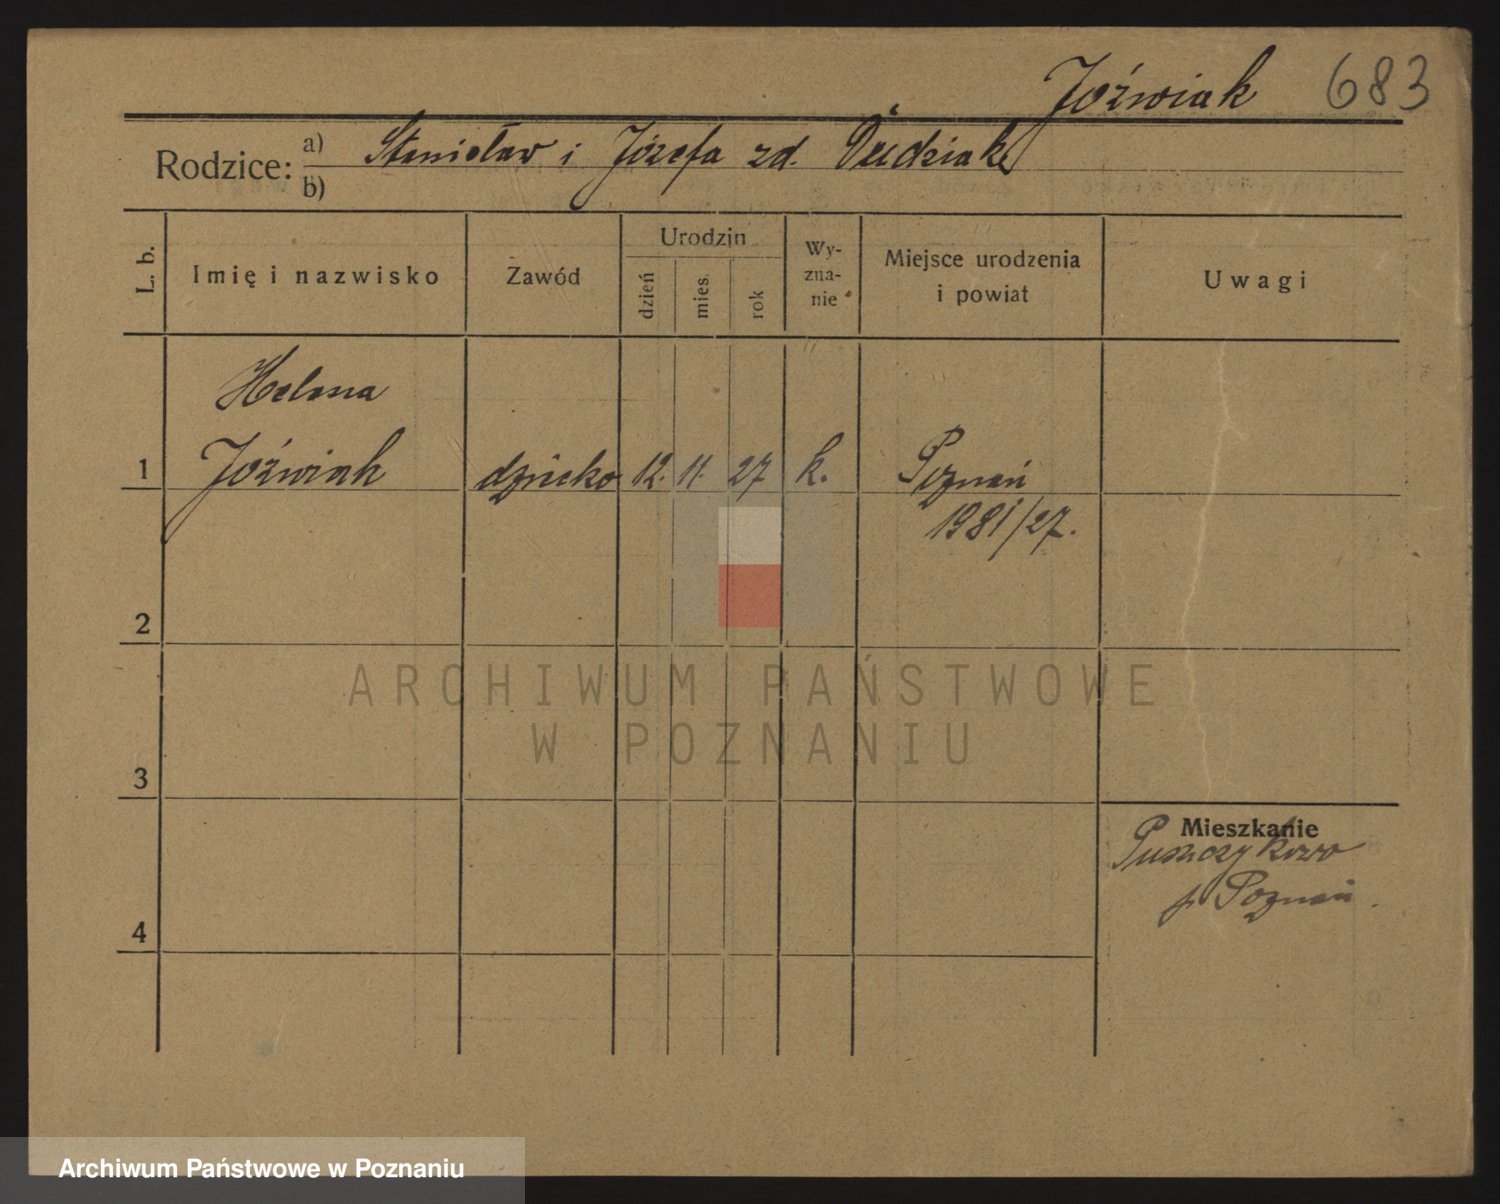 Jóźwiak 683
Rodzice: a) Stanisław i Józefa zd. Dudziak
b)
L. b.
Imię i nazwisko
Zawód
Urodzin
dzień
mies.
rok
Wy-
zna-
nie
Miejsce urodzenia
i powiat
Uwagi
Helena
1 Jóźwiak dziecko 12. 11. 27 k. Poznań
1981/27.
2
ARCHIWUM PAŃSTWOWE
W POZNANIU
3
Mieszkanie
Puszczykowo
p. Poznań.
4
Archiwum Państwowe w Poznaniu